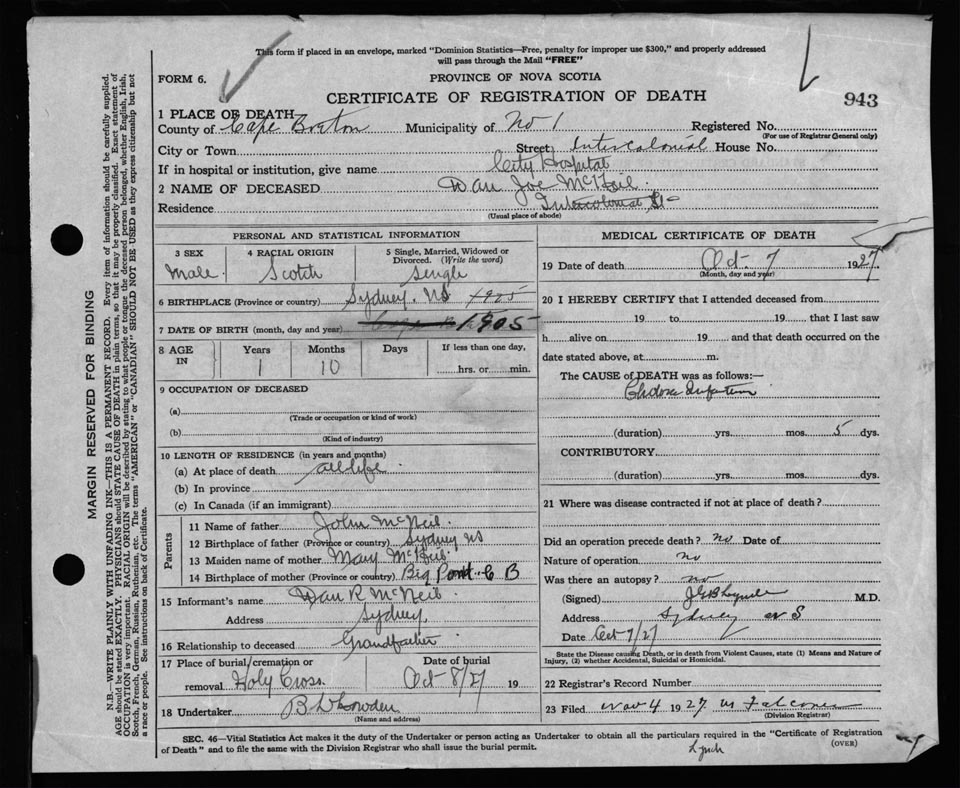 This form if placed in an envelope, marked "Dominion Statistics—Free, penalty for improper use $300," and properly addressed
will pass through the Mail "FREE"
FORM 6.
PROVINCE OF NOVA SCOTIA
CERTIFICATE OF REGISTRATION OF DEATH
943
1 PLACE OF DEATH
County of Cape Breton Municipality of No 1 Registered No.
(For use of Registrar General only)
City or Town Street Intercolonial House No.
If in hospital or institution, give name City Hospital
2 NAME OF DECEASED Dan Joe McNeil
Residence Intercolonial St
(Usual place of abode)
PERSONAL AND STATISTICAL INFORMATION
3 SEX 4 RACIAL ORIGIN 5 Single, Married, Widowed or Divorced. (Write the word)
Male. Scotch Single
6 BIRTHPLACE (Province or country) Sydney. NS 1925
7 DATE OF BIRTH (month, day and year) 1905
8 AGE IN Years Months Days If less than one day,
1 10 hrs. or min.
9 OCCUPATION OF DECEASED
(a)
(Trade or occupation or kind of work)
(b)
(Kind of industry)
10 LENGTH OF RESIDENCE (in years and months)
(a) At place of death all life
(b) In province
(c) In Canada (if an immigrant)
Parents
11 Name of father John McNeil.
12 Birthplace of father (Province or country) Sydney NS
13 Maiden name of mother Mary McNeil
14 Birthplace of mother (Province or country) Big Pond C B
15 Informant's name Dan R McNeil
Address Sydney
16 Relationship to deceased Grandfather
17 Place of burial, cremation or Date of burial
removal Holy Cross Oct 8/27 19
18 Undertaker
(Name and address)
MEDICAL CERTIFICATE OF DEATH
19 Date of death Oct. 7 1927
(Month, day and year)
20 I HEREBY CERTIFY that I attended deceased from
19 to 19 that I last saw
h alive on 19 and that death occurred on the
date stated above, at m.
The CAUSE of DEATH was as follows:—
Cholera Infantum
(duration) yrs. mos. 5 dys.
CONTRIBUTORY
(duration) yrs. mos. dys.
21 Where was disease contracted if not at place of death?
Did an operation precede death? no Date of
Nature of operation no
Was there an autopsy? no
(Signed) M.D.
Address Sydney N S
Date Oct 7/27
State the Disease causing Death, or in death from Violent Causes, state (1) Means and Nature of
Injury, (2) whether Accidental, Suicidal or Homicidal.
22 Registrar's Record Number
23 Filed Nov 4 1927 Falconer
(Division Registrar)
SEC. 46—Vital Statistics Act makes it the duty of the Undertaker or person acting as Undertaker to obtain all the particulars required in the "Certificate of Registration
of Death" and to file the same with the Division Registrar who shall issue the burial permit.
(OVER)
Lynch
MARGIN RESERVED FOR BINDING
N.B.—WRITE PLAINLY WITH UNFADING INK—THIS IS A PERMANENT RECORD. Every item of information should be carefully supplied.
AGE should be stated EXACTLY. PHYSICIANS should STATE CAUSE OF DEATH in plain terms, so that it may be properly classified. Exact statement of
OCCUPATION is very important. RACIAL ORIGIN will be described by stating to what people or tongue the deceased person belonged, whether English, Irish,
Scotch, French, German, Russian, Ruthenian, etc. The terms "AMERICAN" or "CANADIAN" SHOULD NOT BE USED as they express citizenship but not
a race or people. See instructions on back of Certificate.